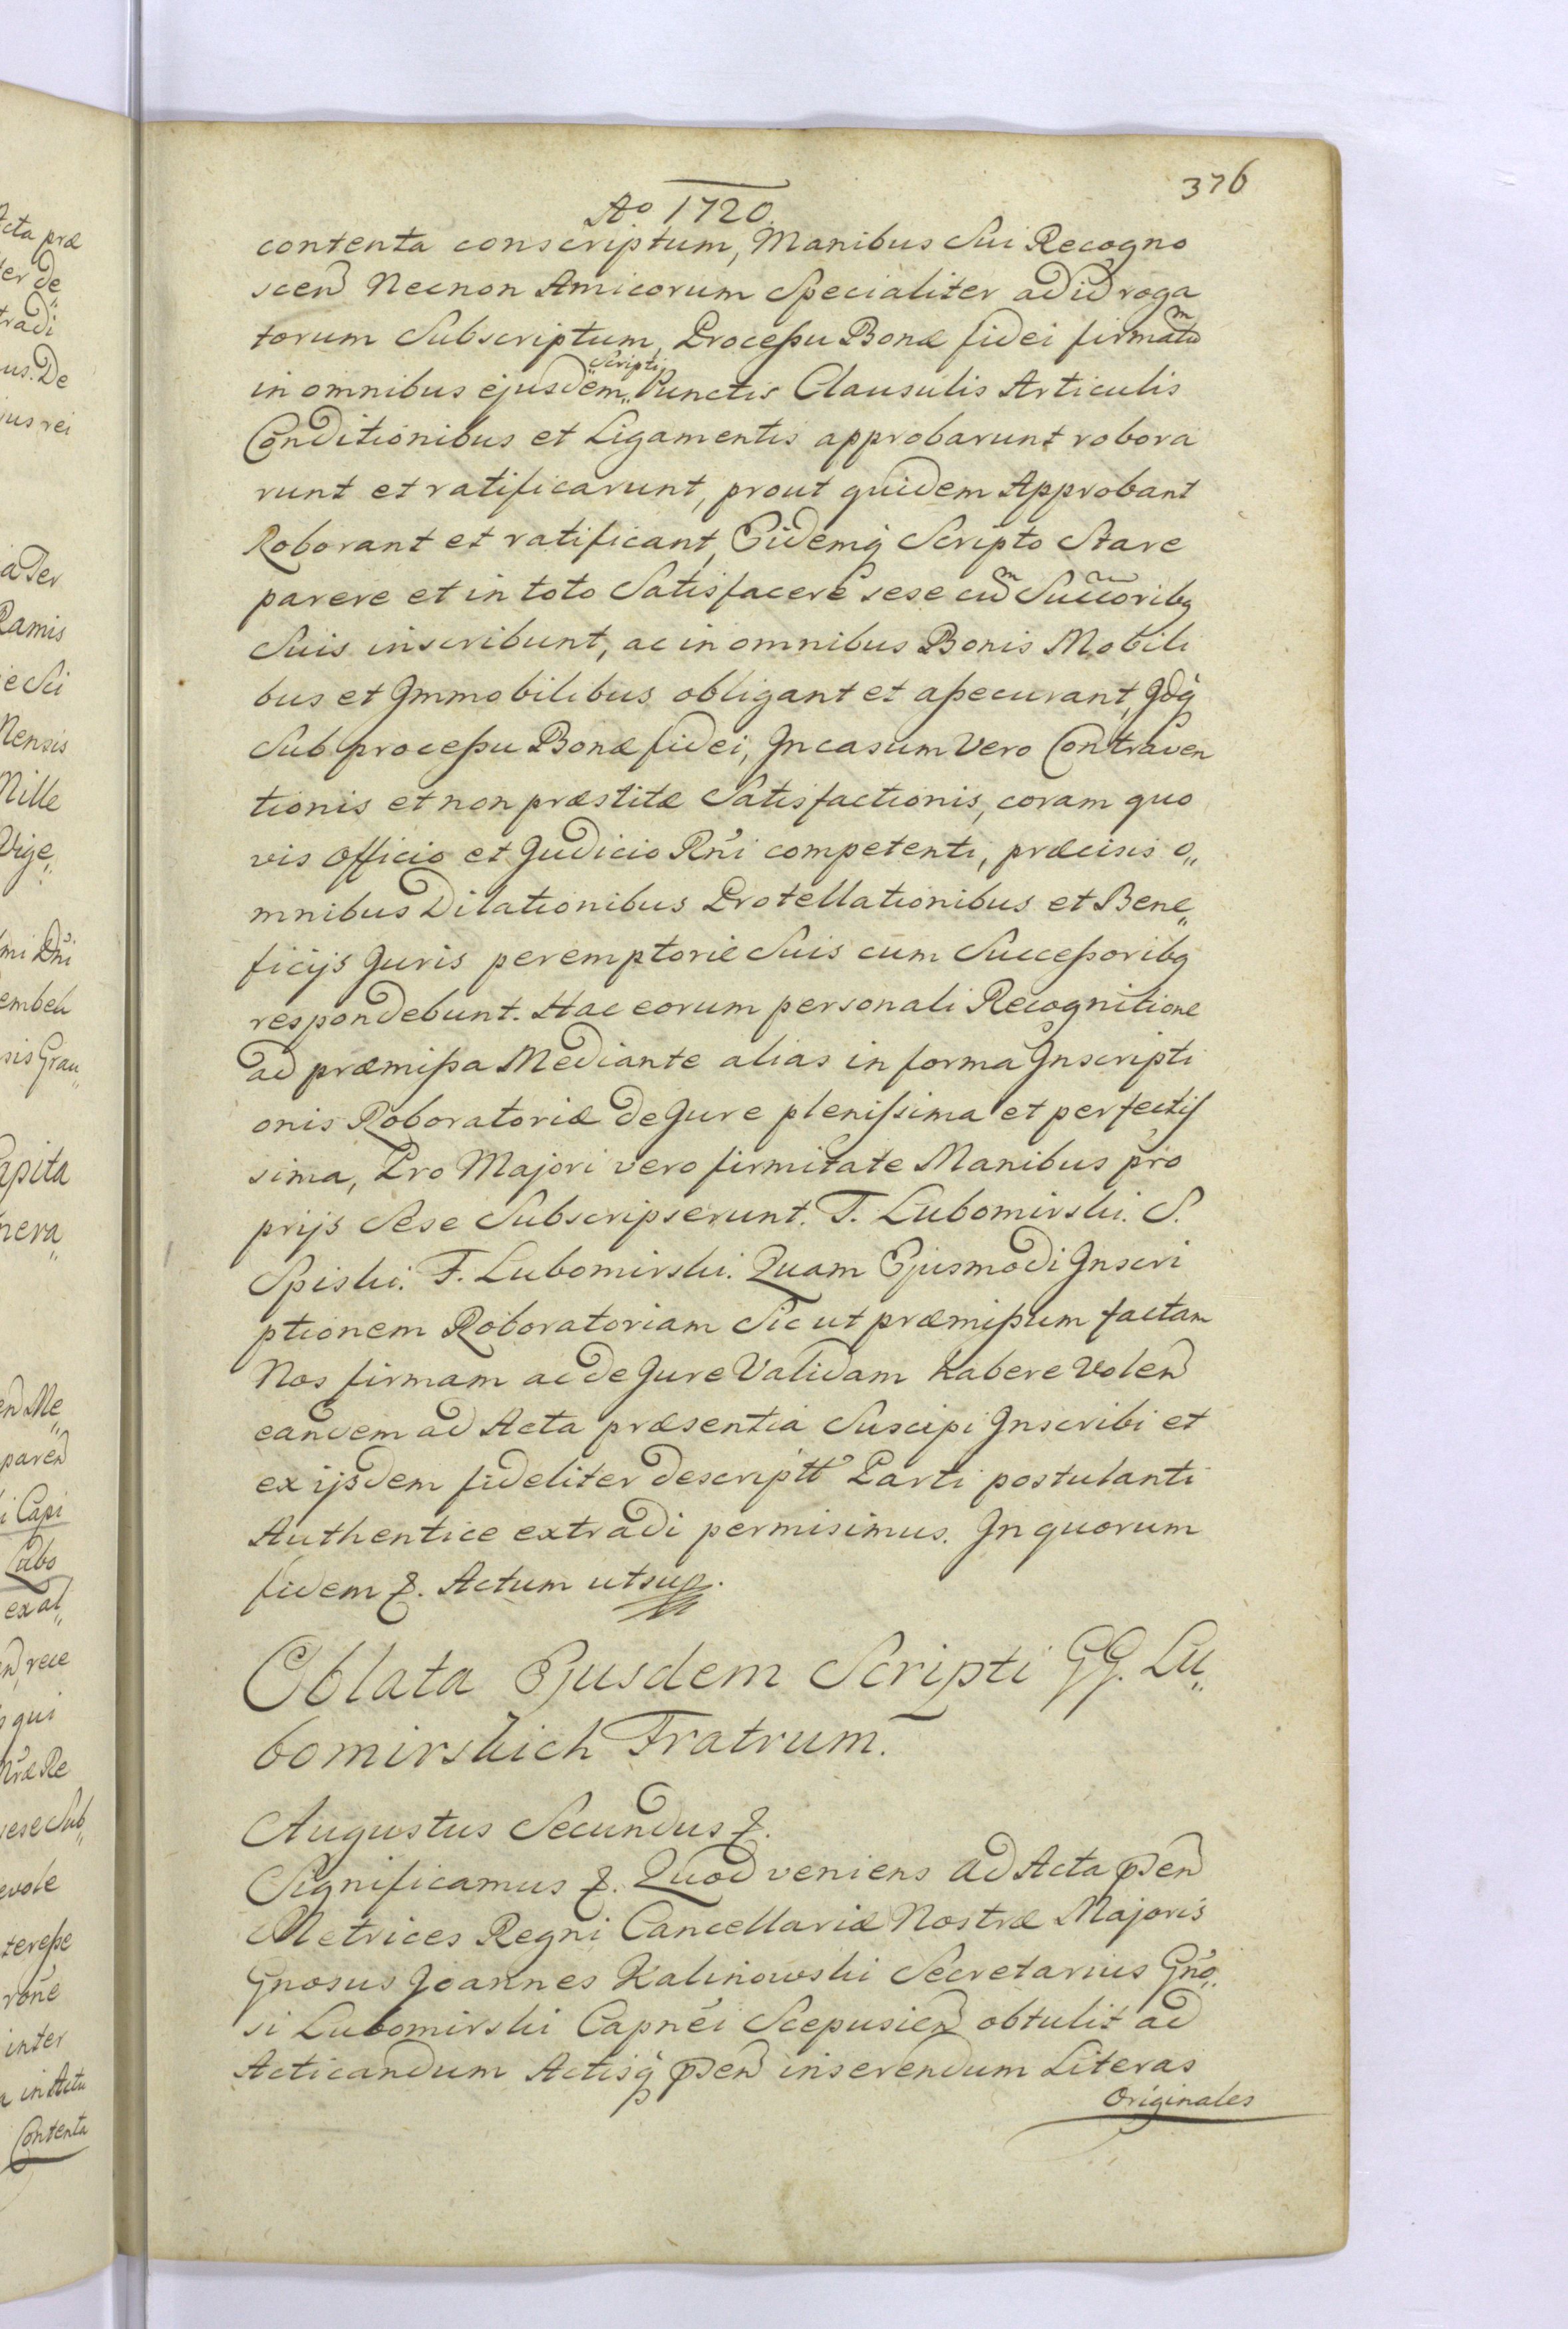 376
Aº 1720.
contenta conscriptum, Manibus Sui Recogno
scen Necnon Amicorum Specialiter ad id roga
torum Subscriptum, Processu Bonæ fidei firmatũ
in omnibus ejusdem Scripti Punctis Clausulis Articulis
Conditionibus et Ligamentis approbarunt robora
runt et ratificarunt, prout quidem Approbant
Roborant et ratificant, Eidemq Scripto Stare
parere et in toto Satisfacere sese cum Succoribq
Suis inscribunt, ac in omnibus Bonis Mobili
bus et Immobilibus obligant et assecurant, Idq
Sub processu Bonæ fidei, In casum Vero Contraven
tionis et non præstitæ Satisfactionis, coram quo
vis Officio et Judicio Rni competenti, præcisis o„
mnibus Dilationibus Protellationibus et Bene„
ficijs Juris peremptorie Suis cum Successoribq
respondebunt. Hac eorum personali Recognitione
ad præmissa Mediante alias in forma Inscripti
onis Roboratoriæ de Jure plenissima et perfectis
sima, Pro Majori vero firmitate Manibus pro
prijs Sese Subscripserunt. T. Lubomirski. S.
Spiski. F. Lubomirski. Quam Ejusmodi Inscri
ptionem Roboratoriam Sicut præmissum factam
Nos firmam ac de Jure Validam habere Volen
eandem ad Acta præsentia Suscipi Inscribi et
ex ijsdem fideliter descriptt Parti postulanti
Authentice extradi permisimus. In quorum
fidem &. Actum ut sup.
Oblata Ejusdem Scripti GG. Lu„
bomirskich Fratrum.
Augustus Secundus &.
Significamus &. Quod veniens ad Acta psen
Metrices Regni Cancellariæ Nostræ Majoris
Gnosus Joannes Kalinowski Secretarius Gno„
si Lubomirski Capnei Scepusien obtulit ad
Acticandum Actisq psen inserendum Literas
Originales